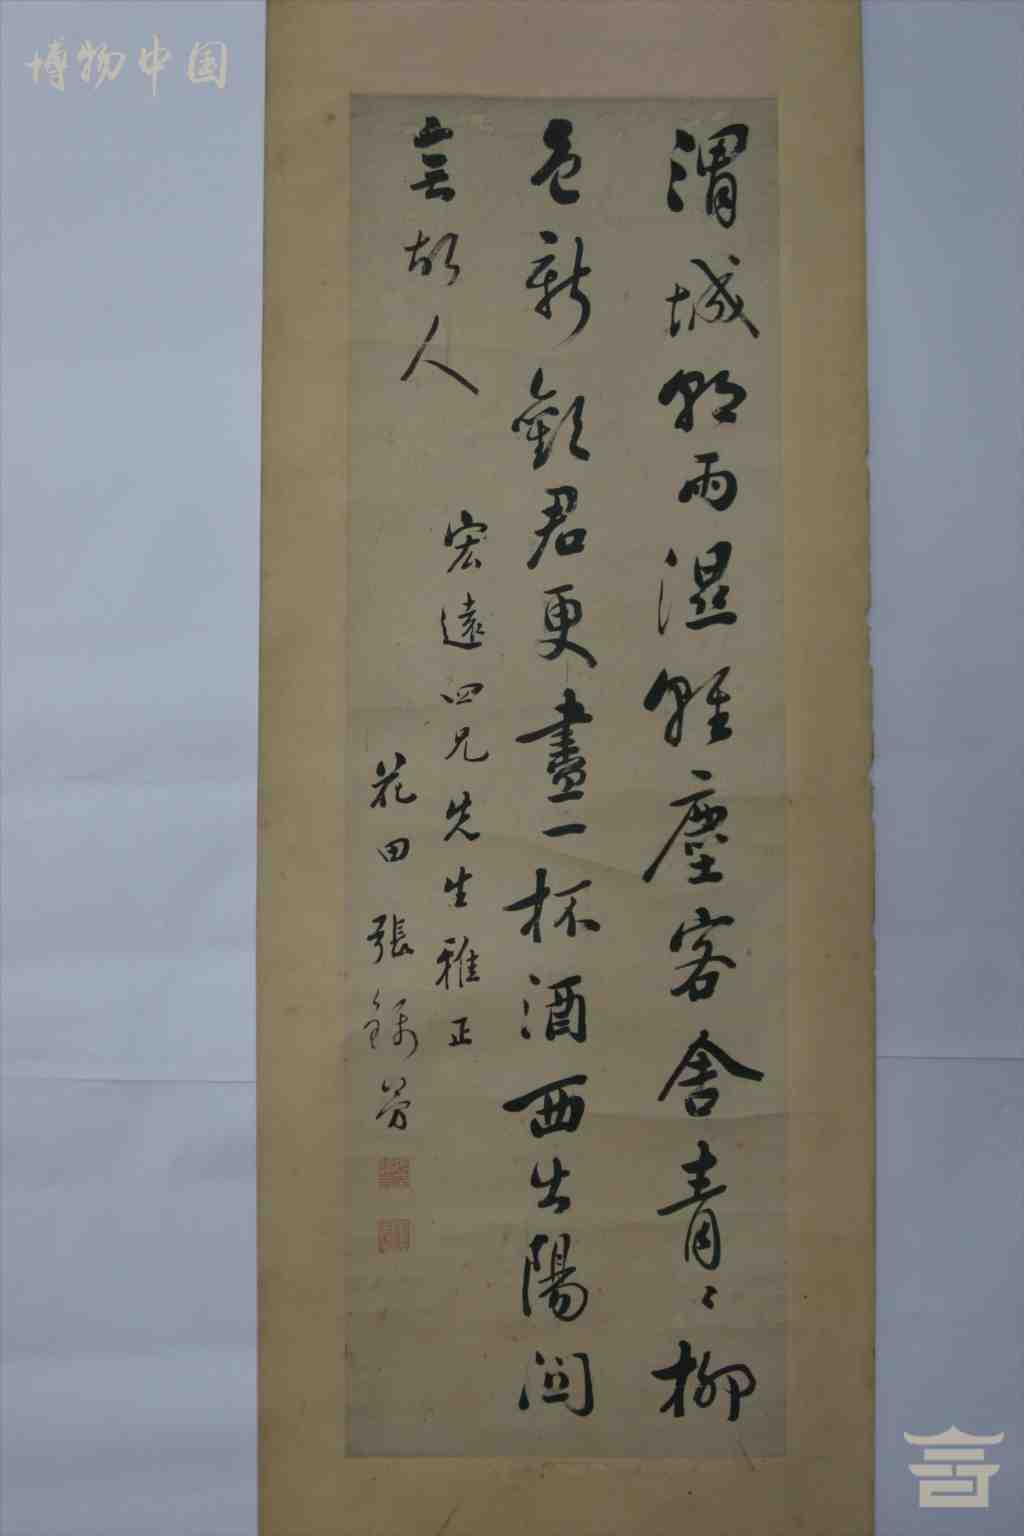 博物中国
渭城朝雨湿輕塵客舍青〻柳
色新勸君更盡一杯酒西出陽關
無故人
宏遠四兄先生雅正
花田張錦芳